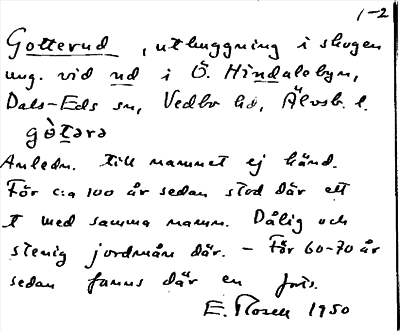 1-2
Gotterud, uthuggning i skogen
ung. vid nd i Ö. Hindalebyn,
Dals-Eds sn, Vedbo hd, Älvsb. l.
gòtərə
Anledn. till namnet ej känd.
För c:a 100 år sedan stod där ett
t med samma namn. Dålig och
stenig jordmån där. - För 60-70 år
sedan fanns där en
E. Rosell 1950